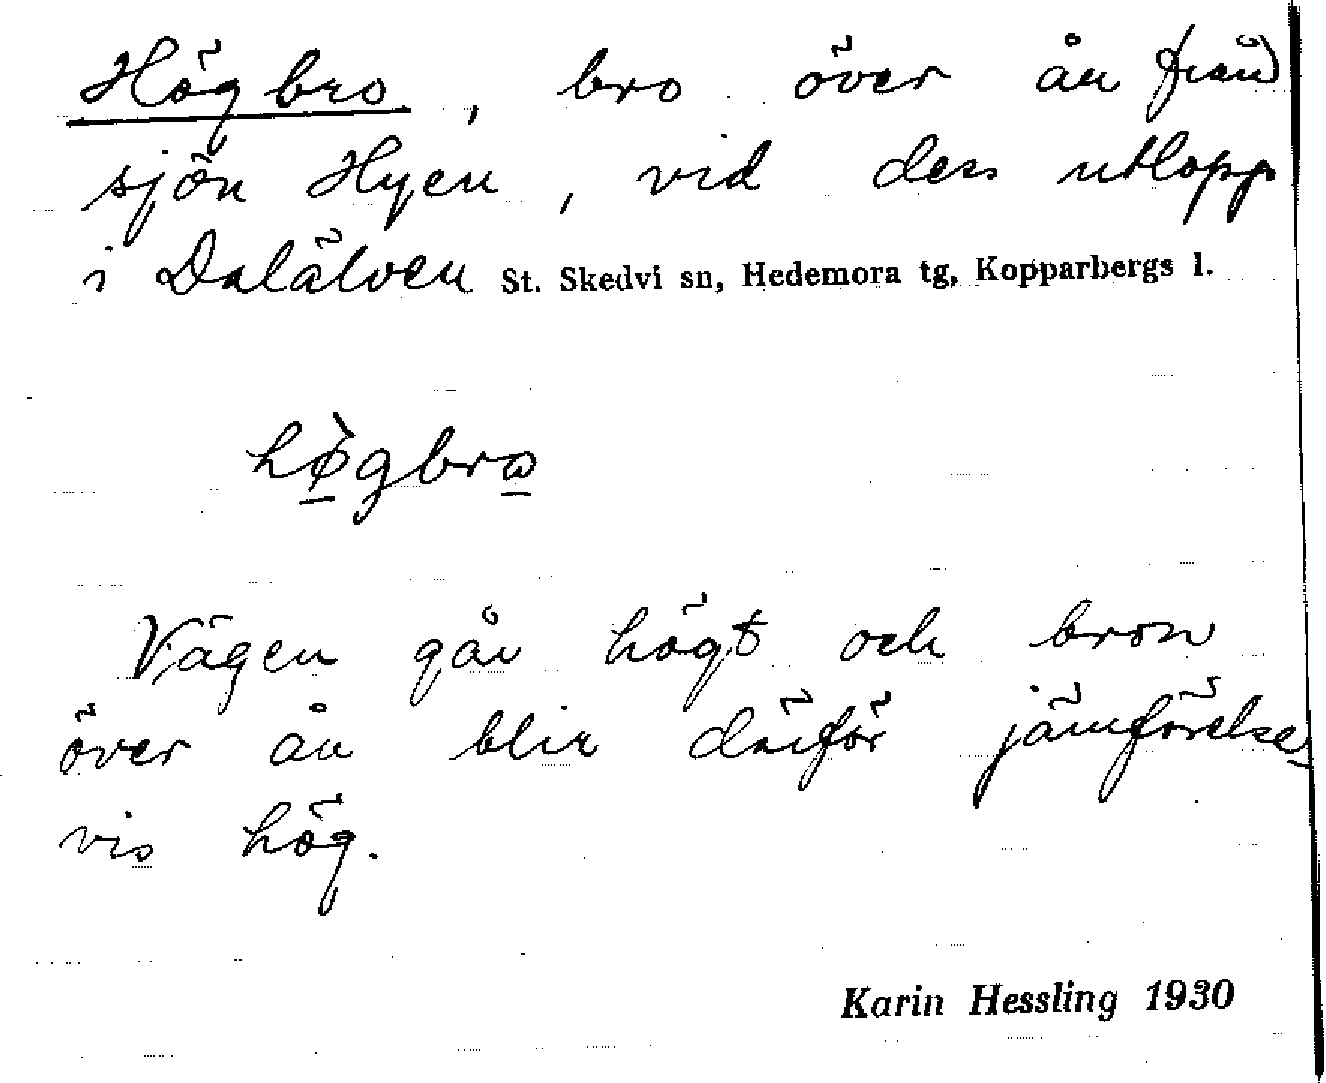 Högbro, bro över ån från
sjön Hyen, vid dess utlopp
i Dalälven St. Skedvi sn, Hedemora tg, Kopparbergs l.
hø̀gbro
Vägen går högt och bron
över ån blir därför jämförelse-
vis hög.
Karin Hessling 1930